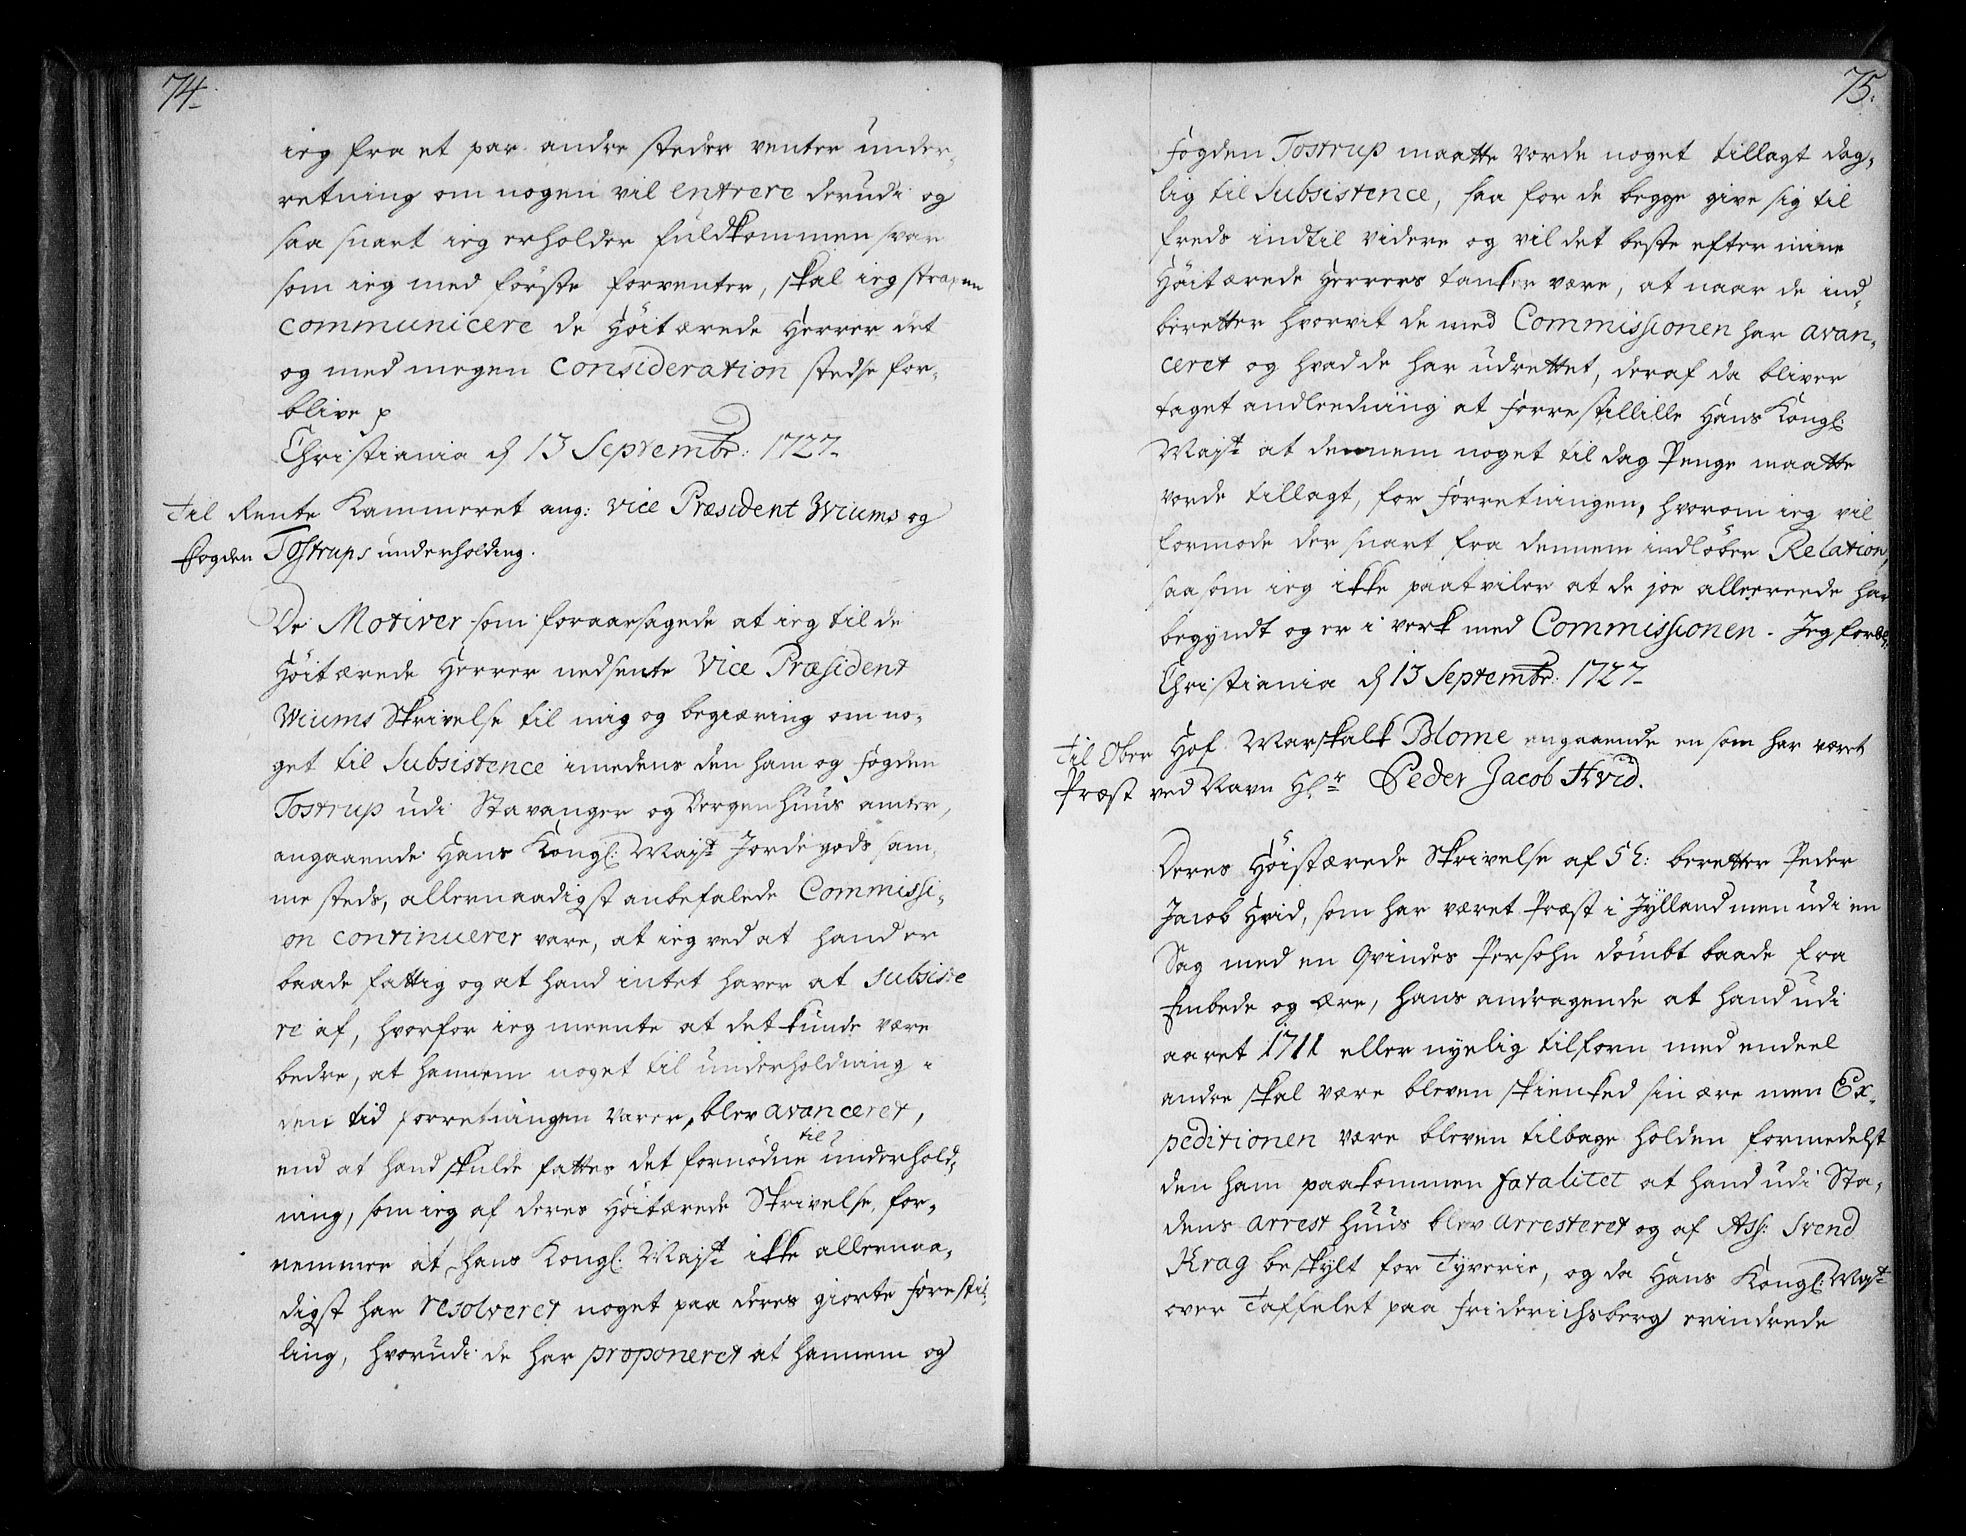 74.
ieg fra et par andre steder venter under-
retning om nogen vil entrere derudi og
saa snart ieg erholder fuldkommen svar
som ieg med förste forventer, skal ieg straxen
communicere de Höitærede Herrer det
og med megen Consideration stedse for-
blive p
Christiania d 13 Septembr: 1727-
Til Rente Kammeret ang: Vice Præsident Wiums og
Fogden Tostrups underholding.
De Motiver som foraarsagede at ieg til de
Höitærede Herrer nedsente Vice Præsident
Wiums Skrivelse til mig og begiæring om no-
get til Subsistence imedens den ham og Fogden
Tostrup udi Stavanger og Bergenhuus amter,
angaaende Hans Kongl: Mayst Jordegods sam-
me steds, allernaadigst anbefalede Commissi-
on continuerer vare, at ieg ved at hand er
baade fattig og at hand intet haver at Subsiste
re af, hvorfor ieg meente at det kunde være
bedre, at hannem noget til underholdning i
den tid forretningen varer, blev avanceret,
end at hand skulde fattes det fornödne til underhold-
ning, som ieg af deres Höitærede Skrivelse, for-
nemmer at hans Kongl: Mayst ikke allernaa-
digst har resolveret noget paa deres giorte Forestil-
ling, hvorudi de har proponeret at hannem og
75.
Fogden Tostrup maatte vorde noget tillagt dag-
lig til Subsistence, saa for de begge give sig til
freds indtil videre og vil det beste efter mine
Höitærede Herrers tanker være, at naar de ind-
beretter hvorvit de med Commissionen har avan-
ceret og hvad de har udrettet, deraf da bliver
taget andleedning at forrestillille Hans Kongl:
Mayst at dennem noget til dag Penge maatte
vorde tillagt, for Forretningen, hvorom ieg vil
formode der snart fra dennem indlöber Relation,
saasom ieg ikke paatviler at de joe allereede har
begyndt og er i verk med Commissionen. Jeg forbl:
Christiania d 13 Septembr: 1727-
Til Ober Hof Marskalk Blome angaaende en som har været
Præst ved Navn Hr Peder Jacob Hvid.
Deres Höistærede Skrivelse af 5t: beretter Peder
Jacob Hvid, som har været Præst i Jylland men udi en
Sag med en Qvindes Persohn dömbt baade fra
Embede og ære, hans andragende at hand udi
aaret 1711 eller nyelig tilforn med endeel
andre skal være bleven skienked sin ære men Ex-
peditionen være bleven tilbage holden formedelst
den ham paakommen fatalitet at hand udi Sta-
dens arrest huus blev arresteret og af Ass: Svend
Krag beskylt for Tyverie, og da Hans Kongl: Mayst
over Taffelet paa Friderichsberg erindrede